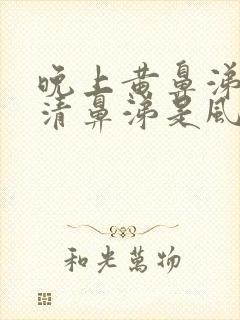 晚上黄鼻涕
清鼻涕是风
和光萬物